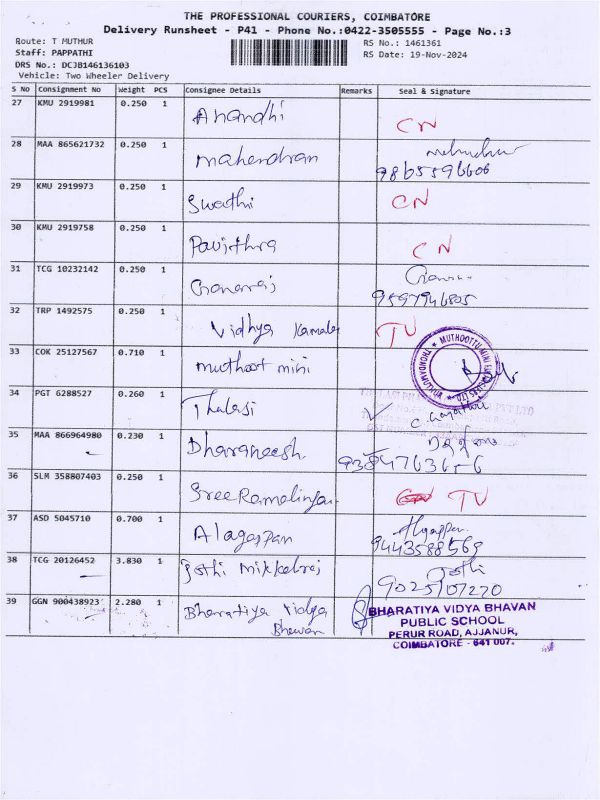 THE PROFESSIONAL COURIERS, COIMBATORE
Delivery Runsheet - P41 - Phone No.:0422-3505555 - Page No.:3
Route: T MUTHUR
Staff: PAPPATHI
DRS No.: DCJB146136103
Vehicle: Two Wheeler Delivery
RS No.: 1461361
RS Date: 19-Nov-2024
S No Consignment No Weight PCS Consignee Details Remarks Seal & Signature
27 KMU 2919981 0.250 1 Anandhi CN
28 MAA 865621732 0.250 1 mahendran
9865596606
29 KMU 2919973 0.250 1 Swathi CN
30 KMU 2919758 0.250 1 Pavithra CN
31 TCG 10232142 0.250 1
9597946805
32 TRP 1492575 0.250 1 Vidhya Kamala TV
33 COK 25127567 0.710 1 muthoot mini
34 PGT 6288527 0.260 1 Thulasi
35 MAA 866964980 0.230 1 Dharaneesh
36 SLM 358807403 0.250 1 TV
37 ASD 5045710 0.700 1 Alagappan
9443588569
38 TCG 20126452 3.830 1 Jothi Jothi
9025107270
39 GGN 900438923 2.280 1 Bharatiya Vidya
Bhavan
BHARATIYA VIDYA BHAVAN
PUBLIC SCHOOL
PERUR ROAD, AJJANUR,
COIMBATORE - 641 007.